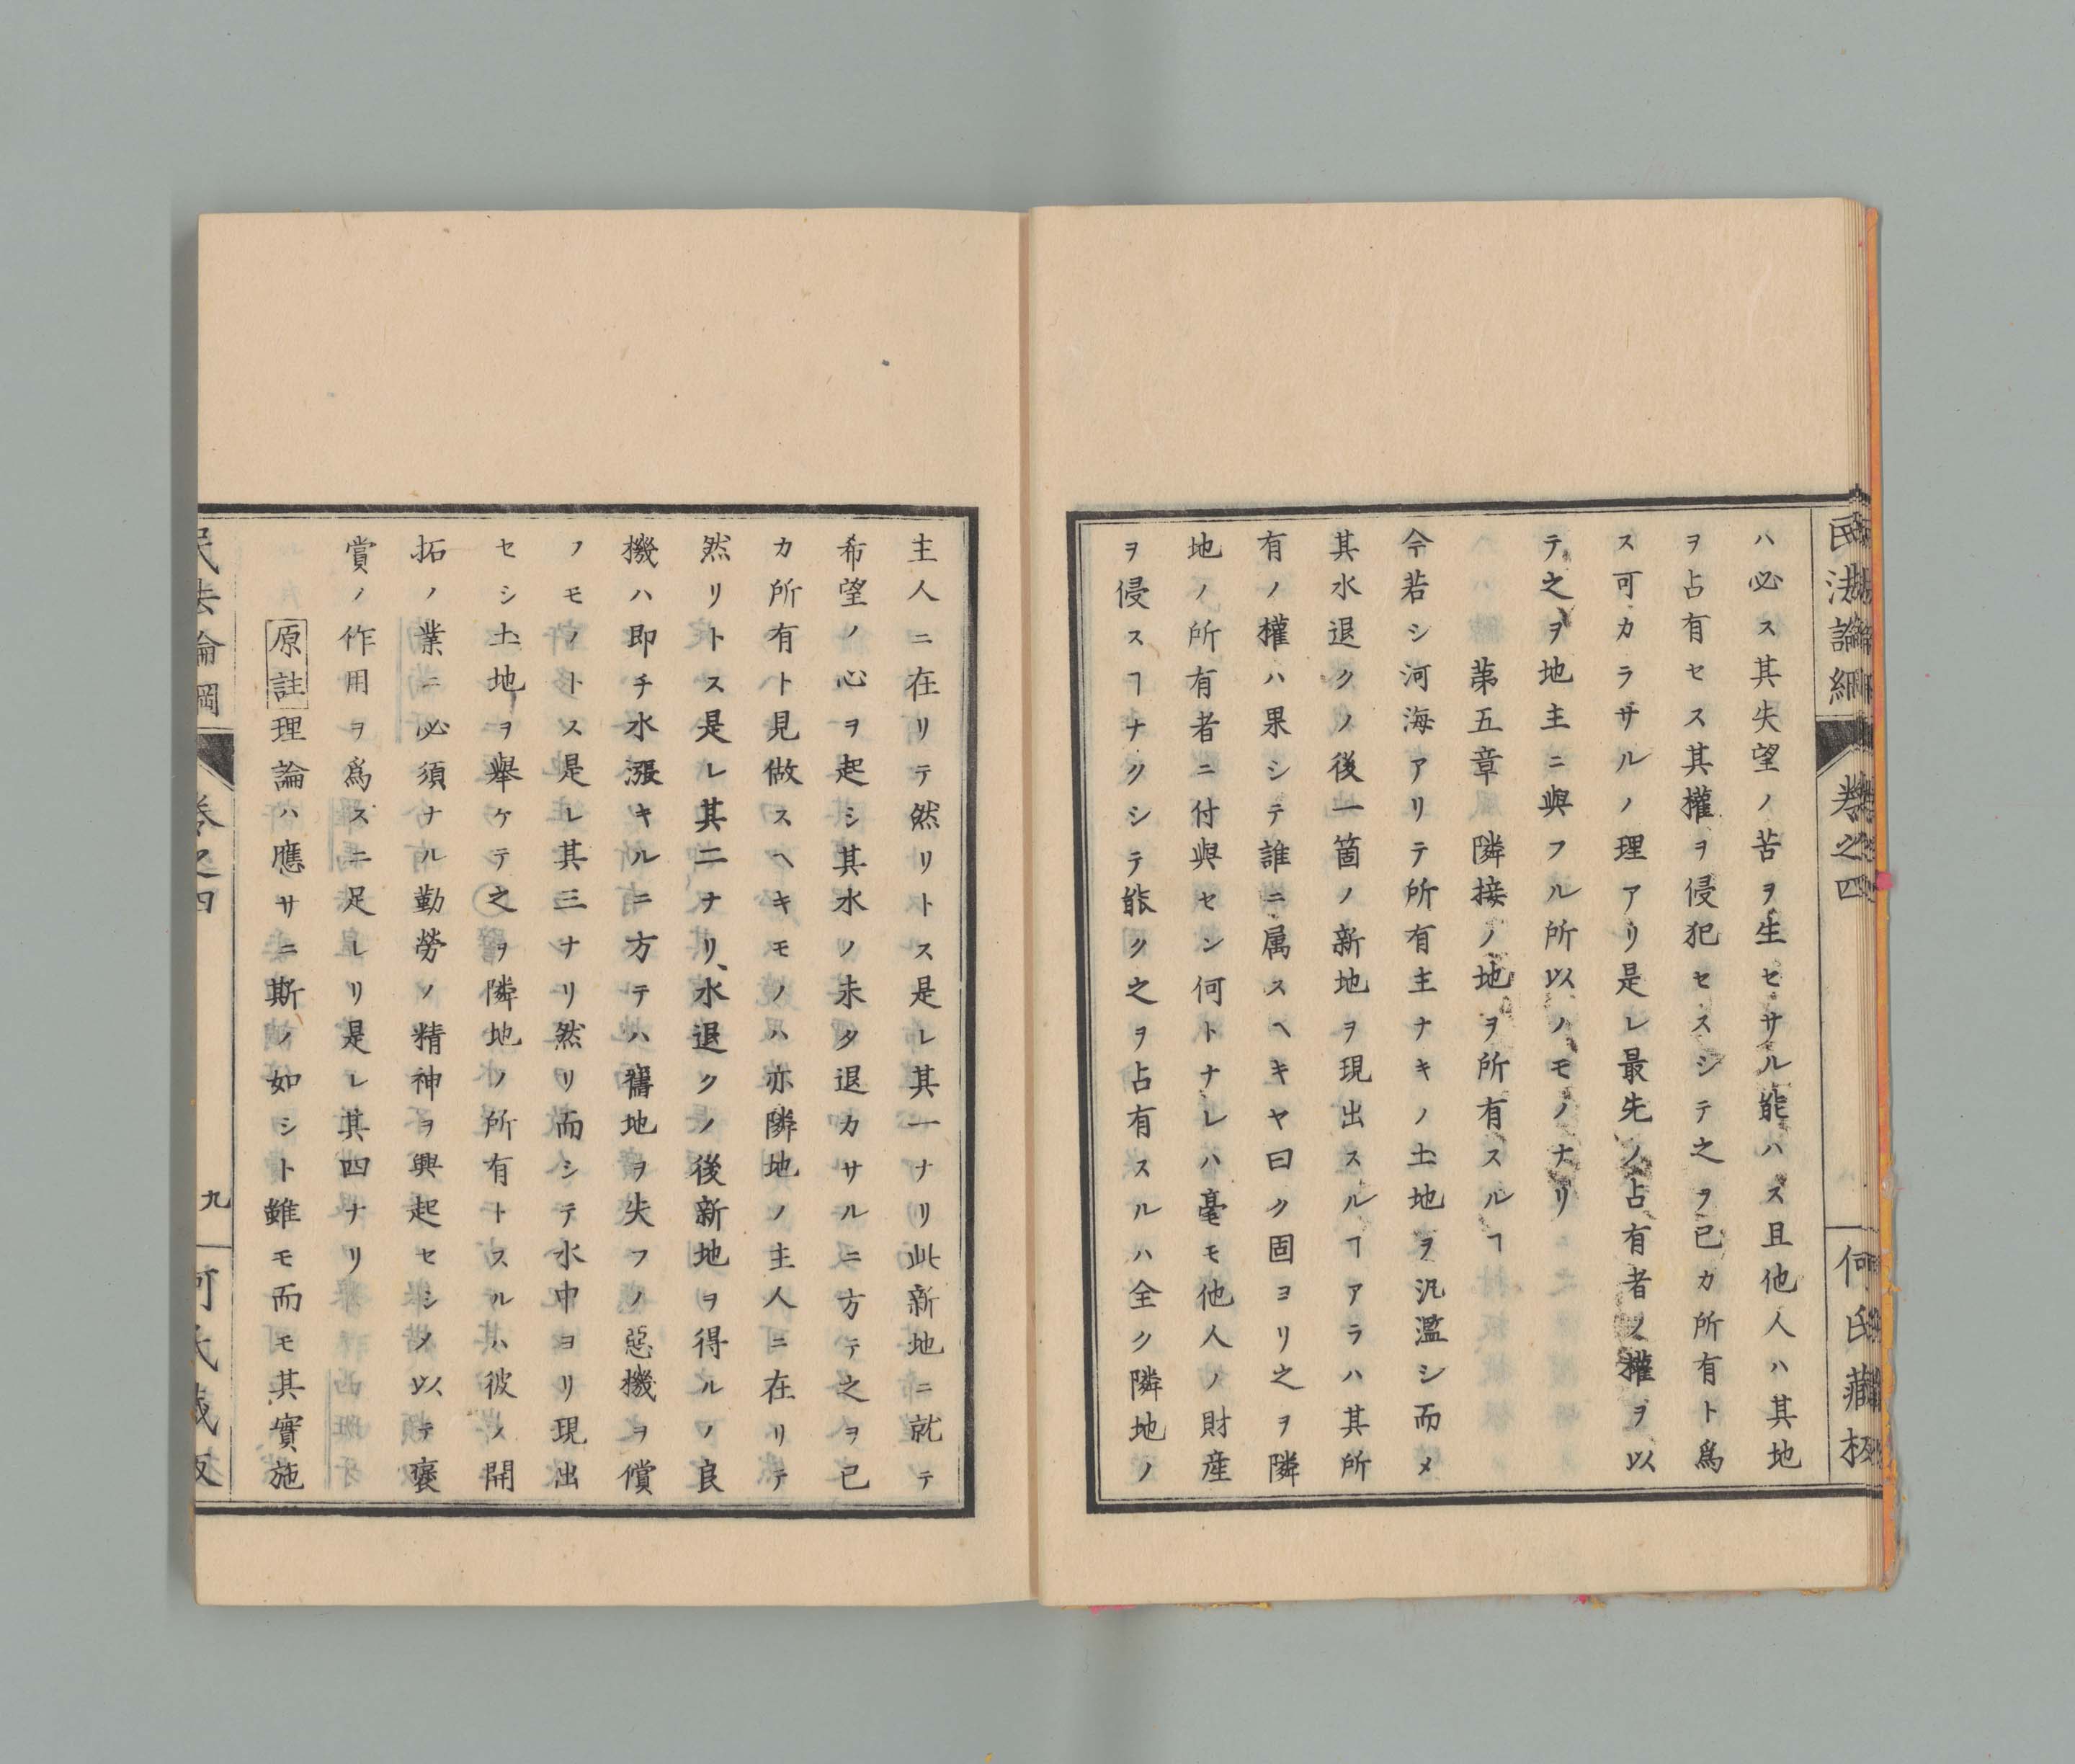 民法論綱 卷之四 何氏藏板
ハ必ス其失望ノ苦ヲ生セサル能ハス且他人ハ其地
ヲ占有セス其權ヲ侵犯セスシテ之ヲ已カ所有ト爲
ス可カラサルノ理アリ是レ最先ノ占有者ノ權ヲ以
テ之ヲ地主ニ與フル所以ノモノナリ
第五章 隣接ノ地ヲ所有スルヿ
今若シ河海アリテ所有主ナキノ土地ヲ汎濫シ而メ
其水退クノ後一箇ノ新地ヲ現出スルヿアラハ其所
有ノ權ハ果シテ誰ニ属スヘキヤ曰ク固ヨリ之ヲ隣
地ノ所有者ニ付與セン何トナレハ毫モ他人ノ財産
ヲ侵スヿナクシテ能ク之ヲ占有スルハ全ク隣地ノ
主人ニ在リテ然リトス是レ其一ナリ此新地ニ就テ
希望ノ心ヲ起シ其水ノ未タ退カサルニ方テ之ヲ已
カ所有ト見做スヘキモノハ亦隣地ノ主人ニ在リテ
然リトス是レ其二ナリ、水退クノ後新地ヲ得ルノ良
機ハ即チ水漲キルニ方テハ舊地ヲ失フノ惡機ヲ償
フモノトス是レ其三ナリ然リ而シテ水中ヨリ現出
セシ土地ヲ擧ケテ之ヲ隣地ノ所有トスルハ彼ノ開
拓ノ業ニ必須ナル勤勞ノ精神ヲ興起セシメ以テ褒
賞ノ作用ヲ爲スニ足レリ是レ其四ナリ
原註 理論ハ應サニ斯ノ如シト雖モ而モ其實施
民法論綱 卷之四 九 何氏藏板